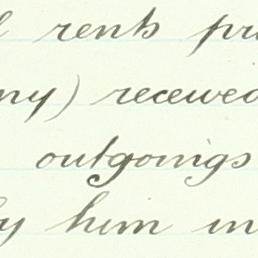 rents
ny) received
outgoings
by him in